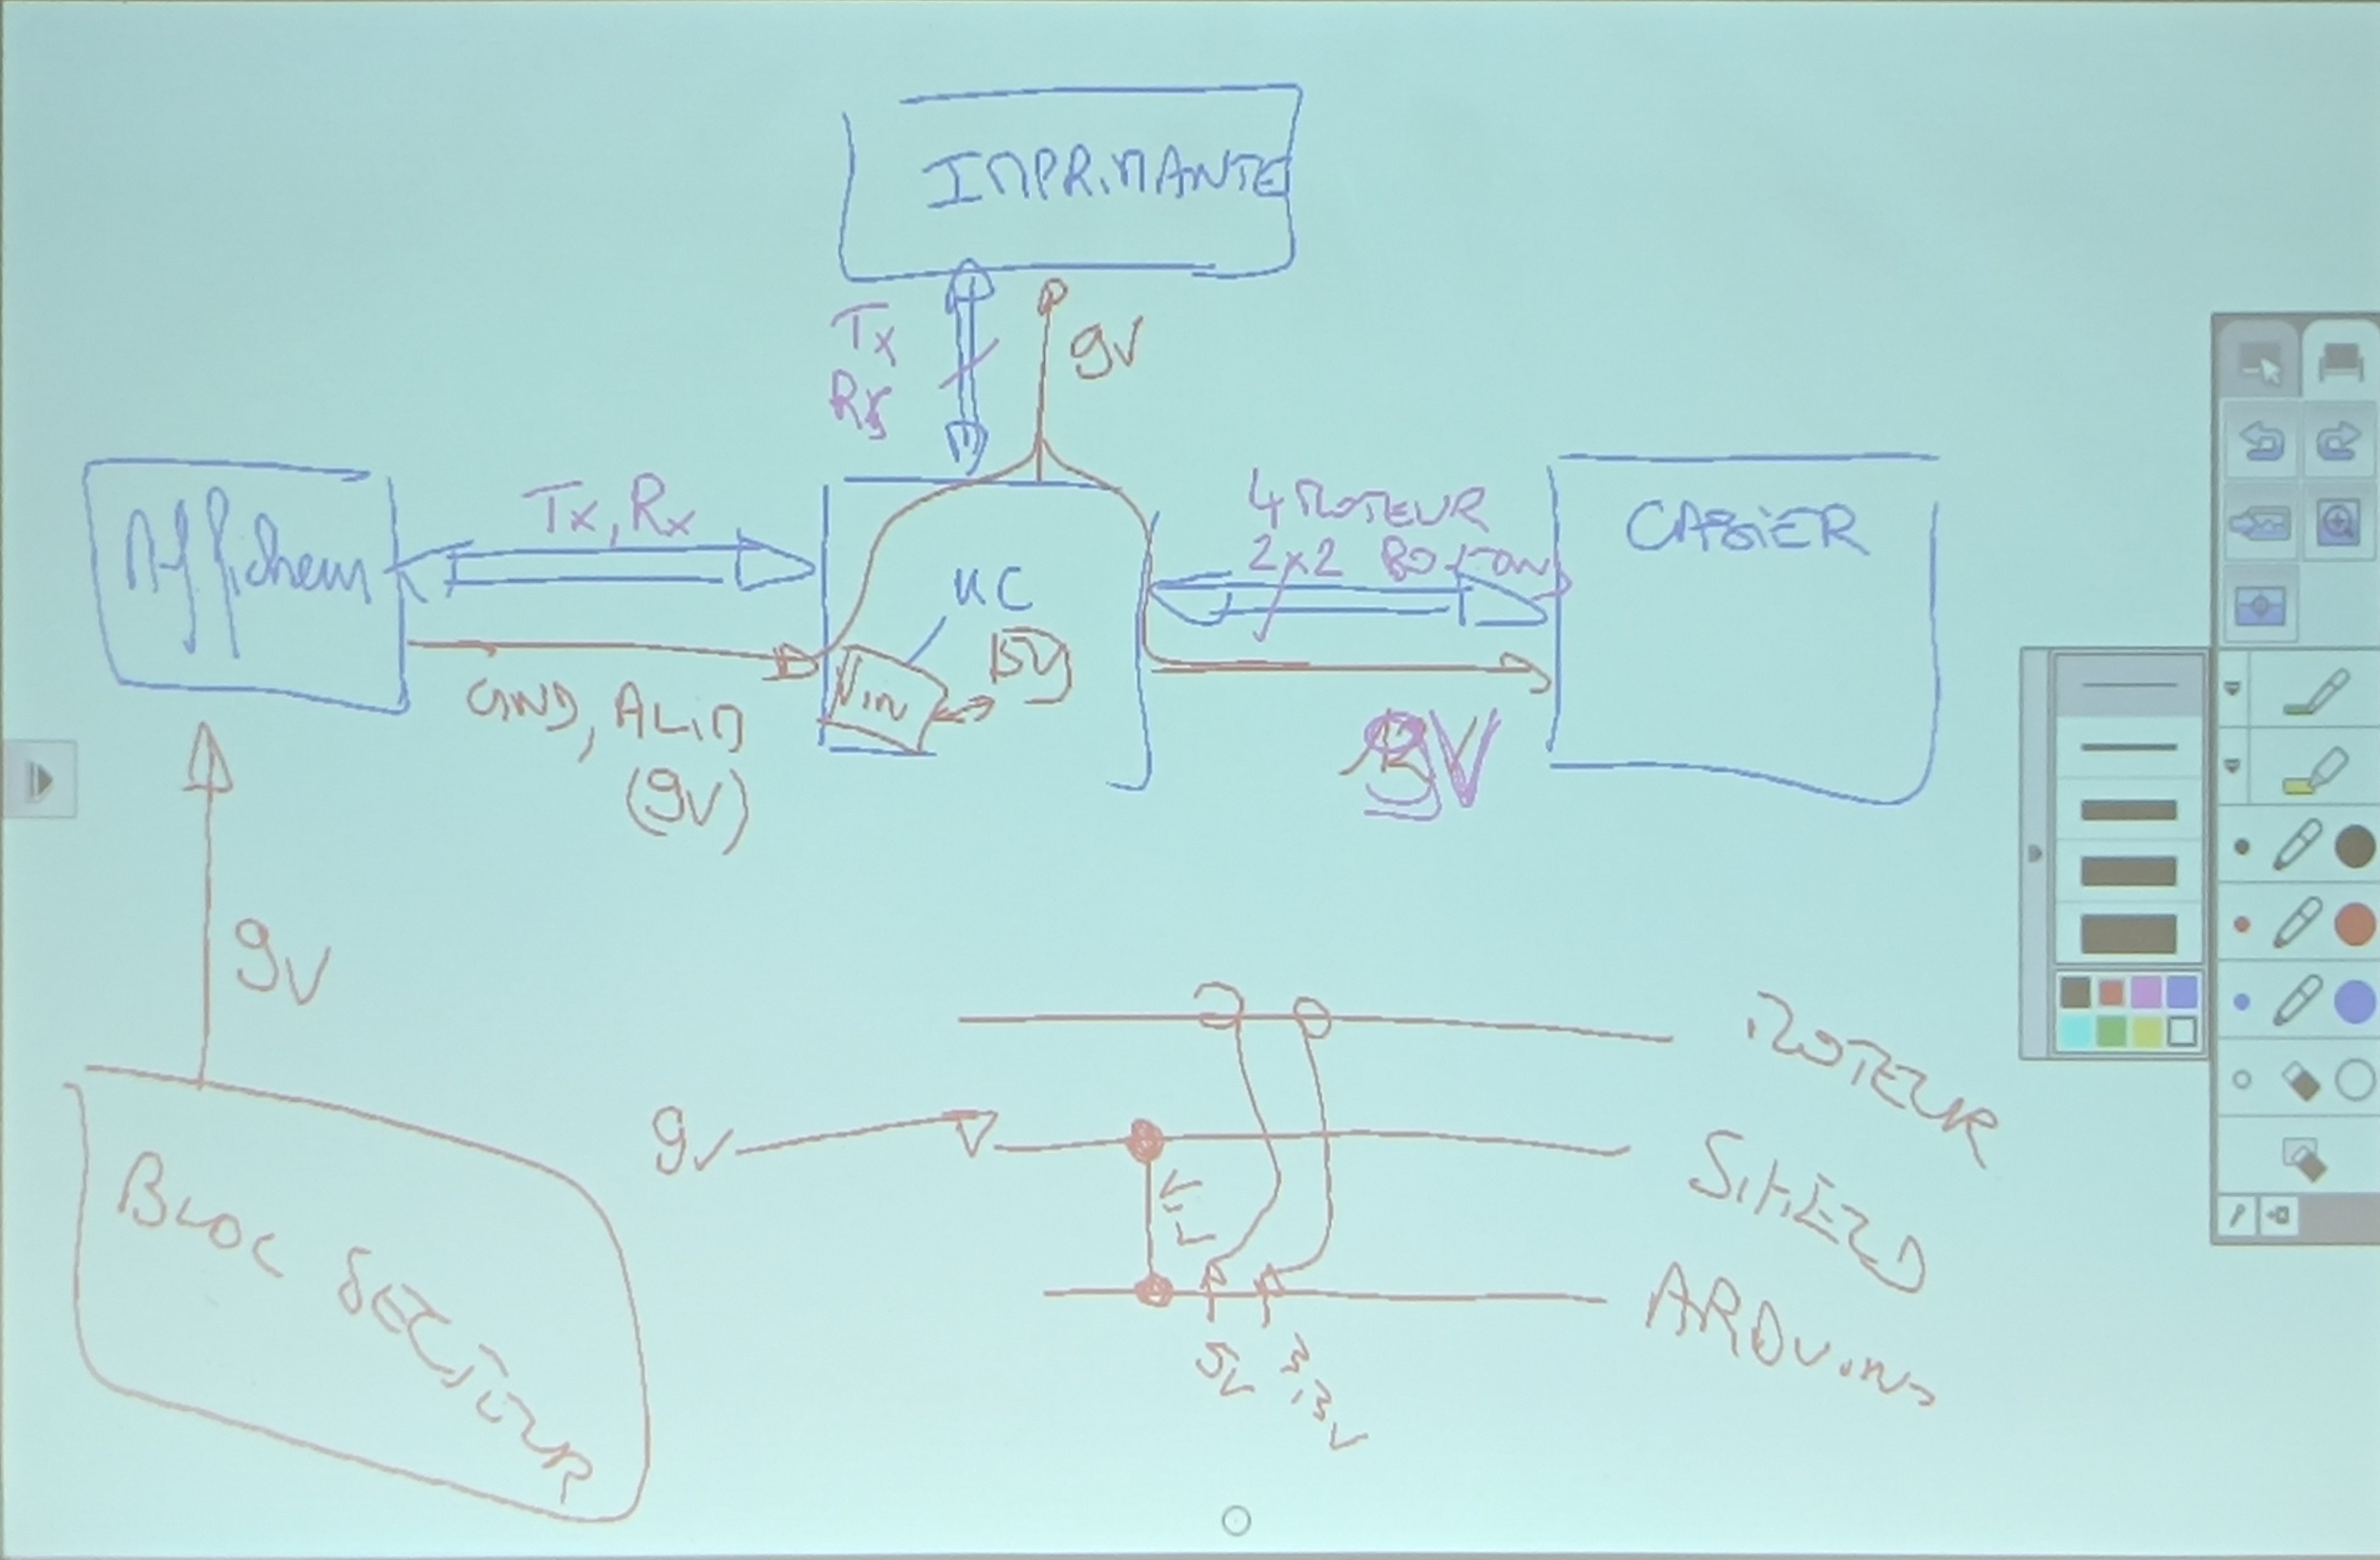 IMPRIMANTE
Tx
Rx
9V
Afficheur
Tx, Rx
4 MOTEUR
2x2 BOUTON
CASIER
µC
Vin
5V
GND, ALIM
(9V)
9V
9V
BLOC SECTEUR
MOTEUR
9V
SHIELD
ARDUINO
5V
3,3V